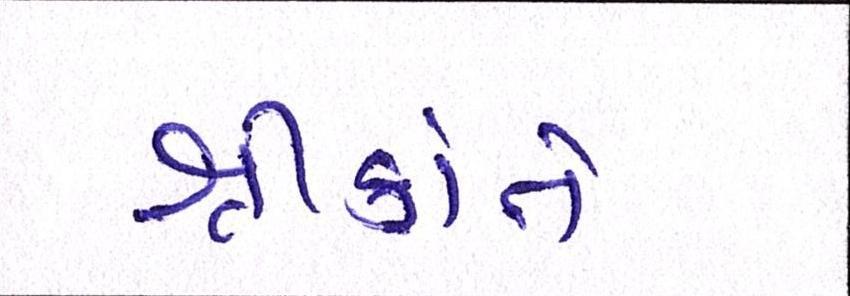 શ્રીકાંતે